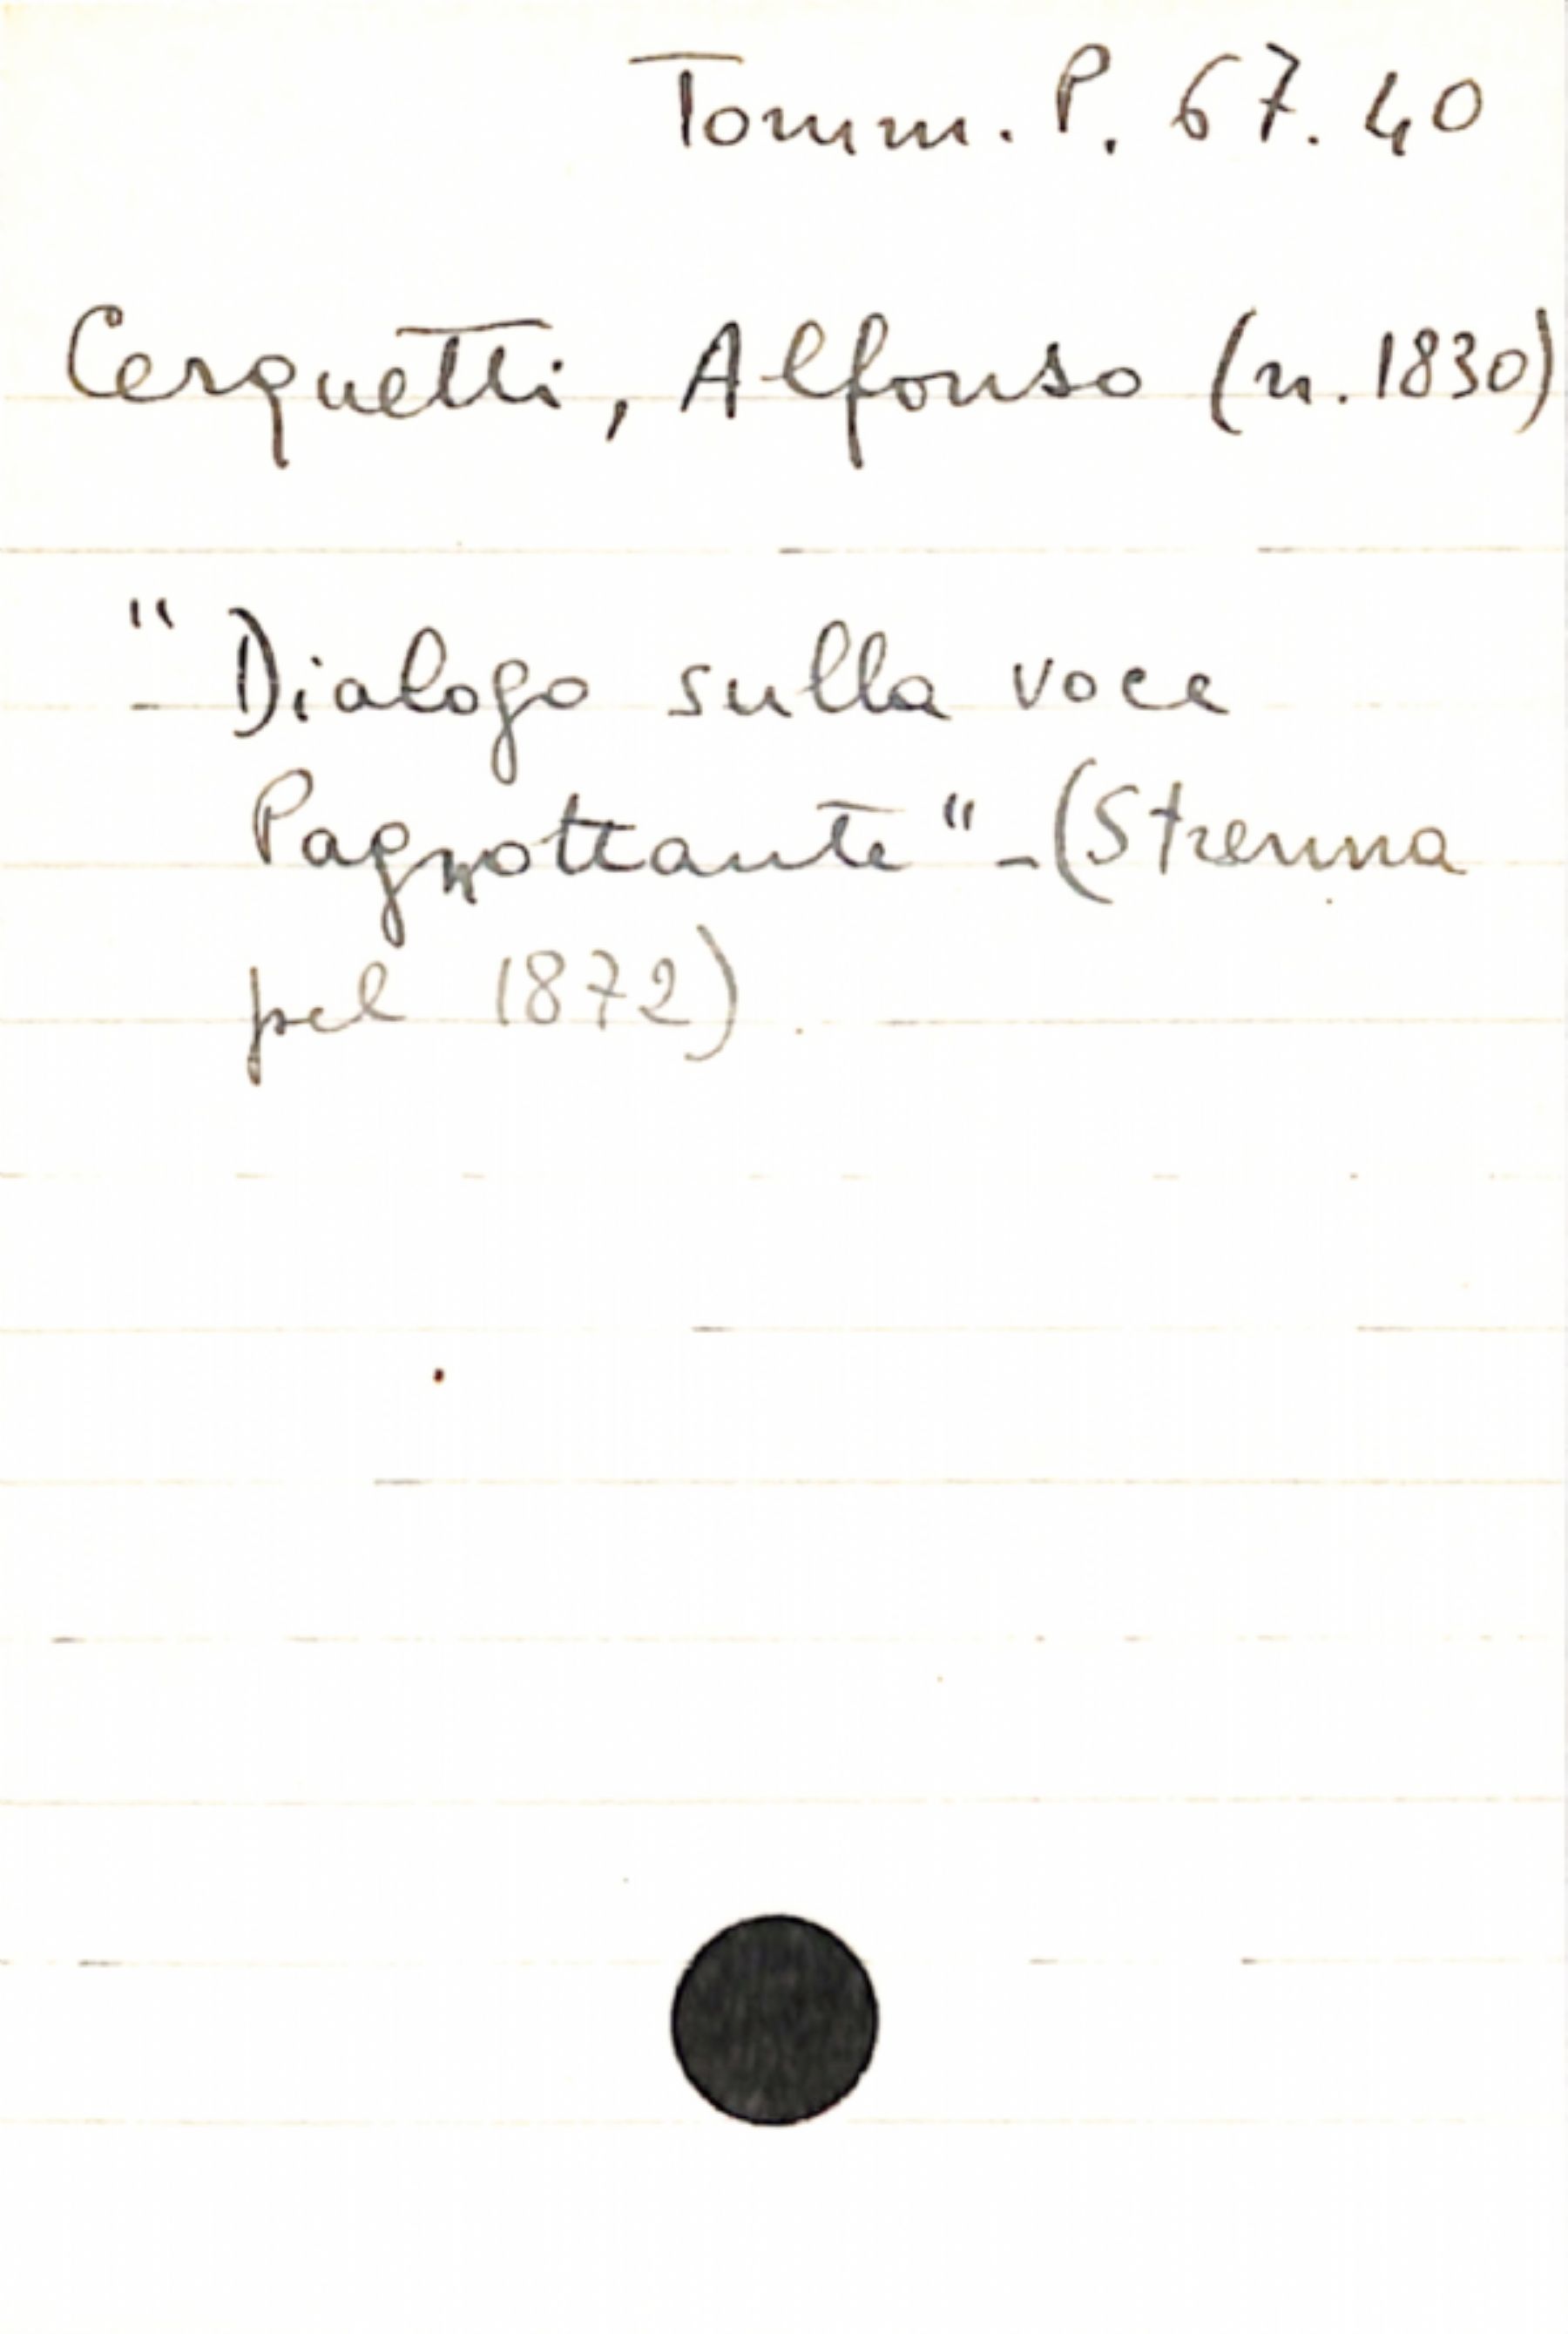 Tomm. P. 67. 40
Cerquetti, Alfonso (n. 1830)
" Dialogo sulla voce
Pagnottante" - (Strenna
pel 1872)